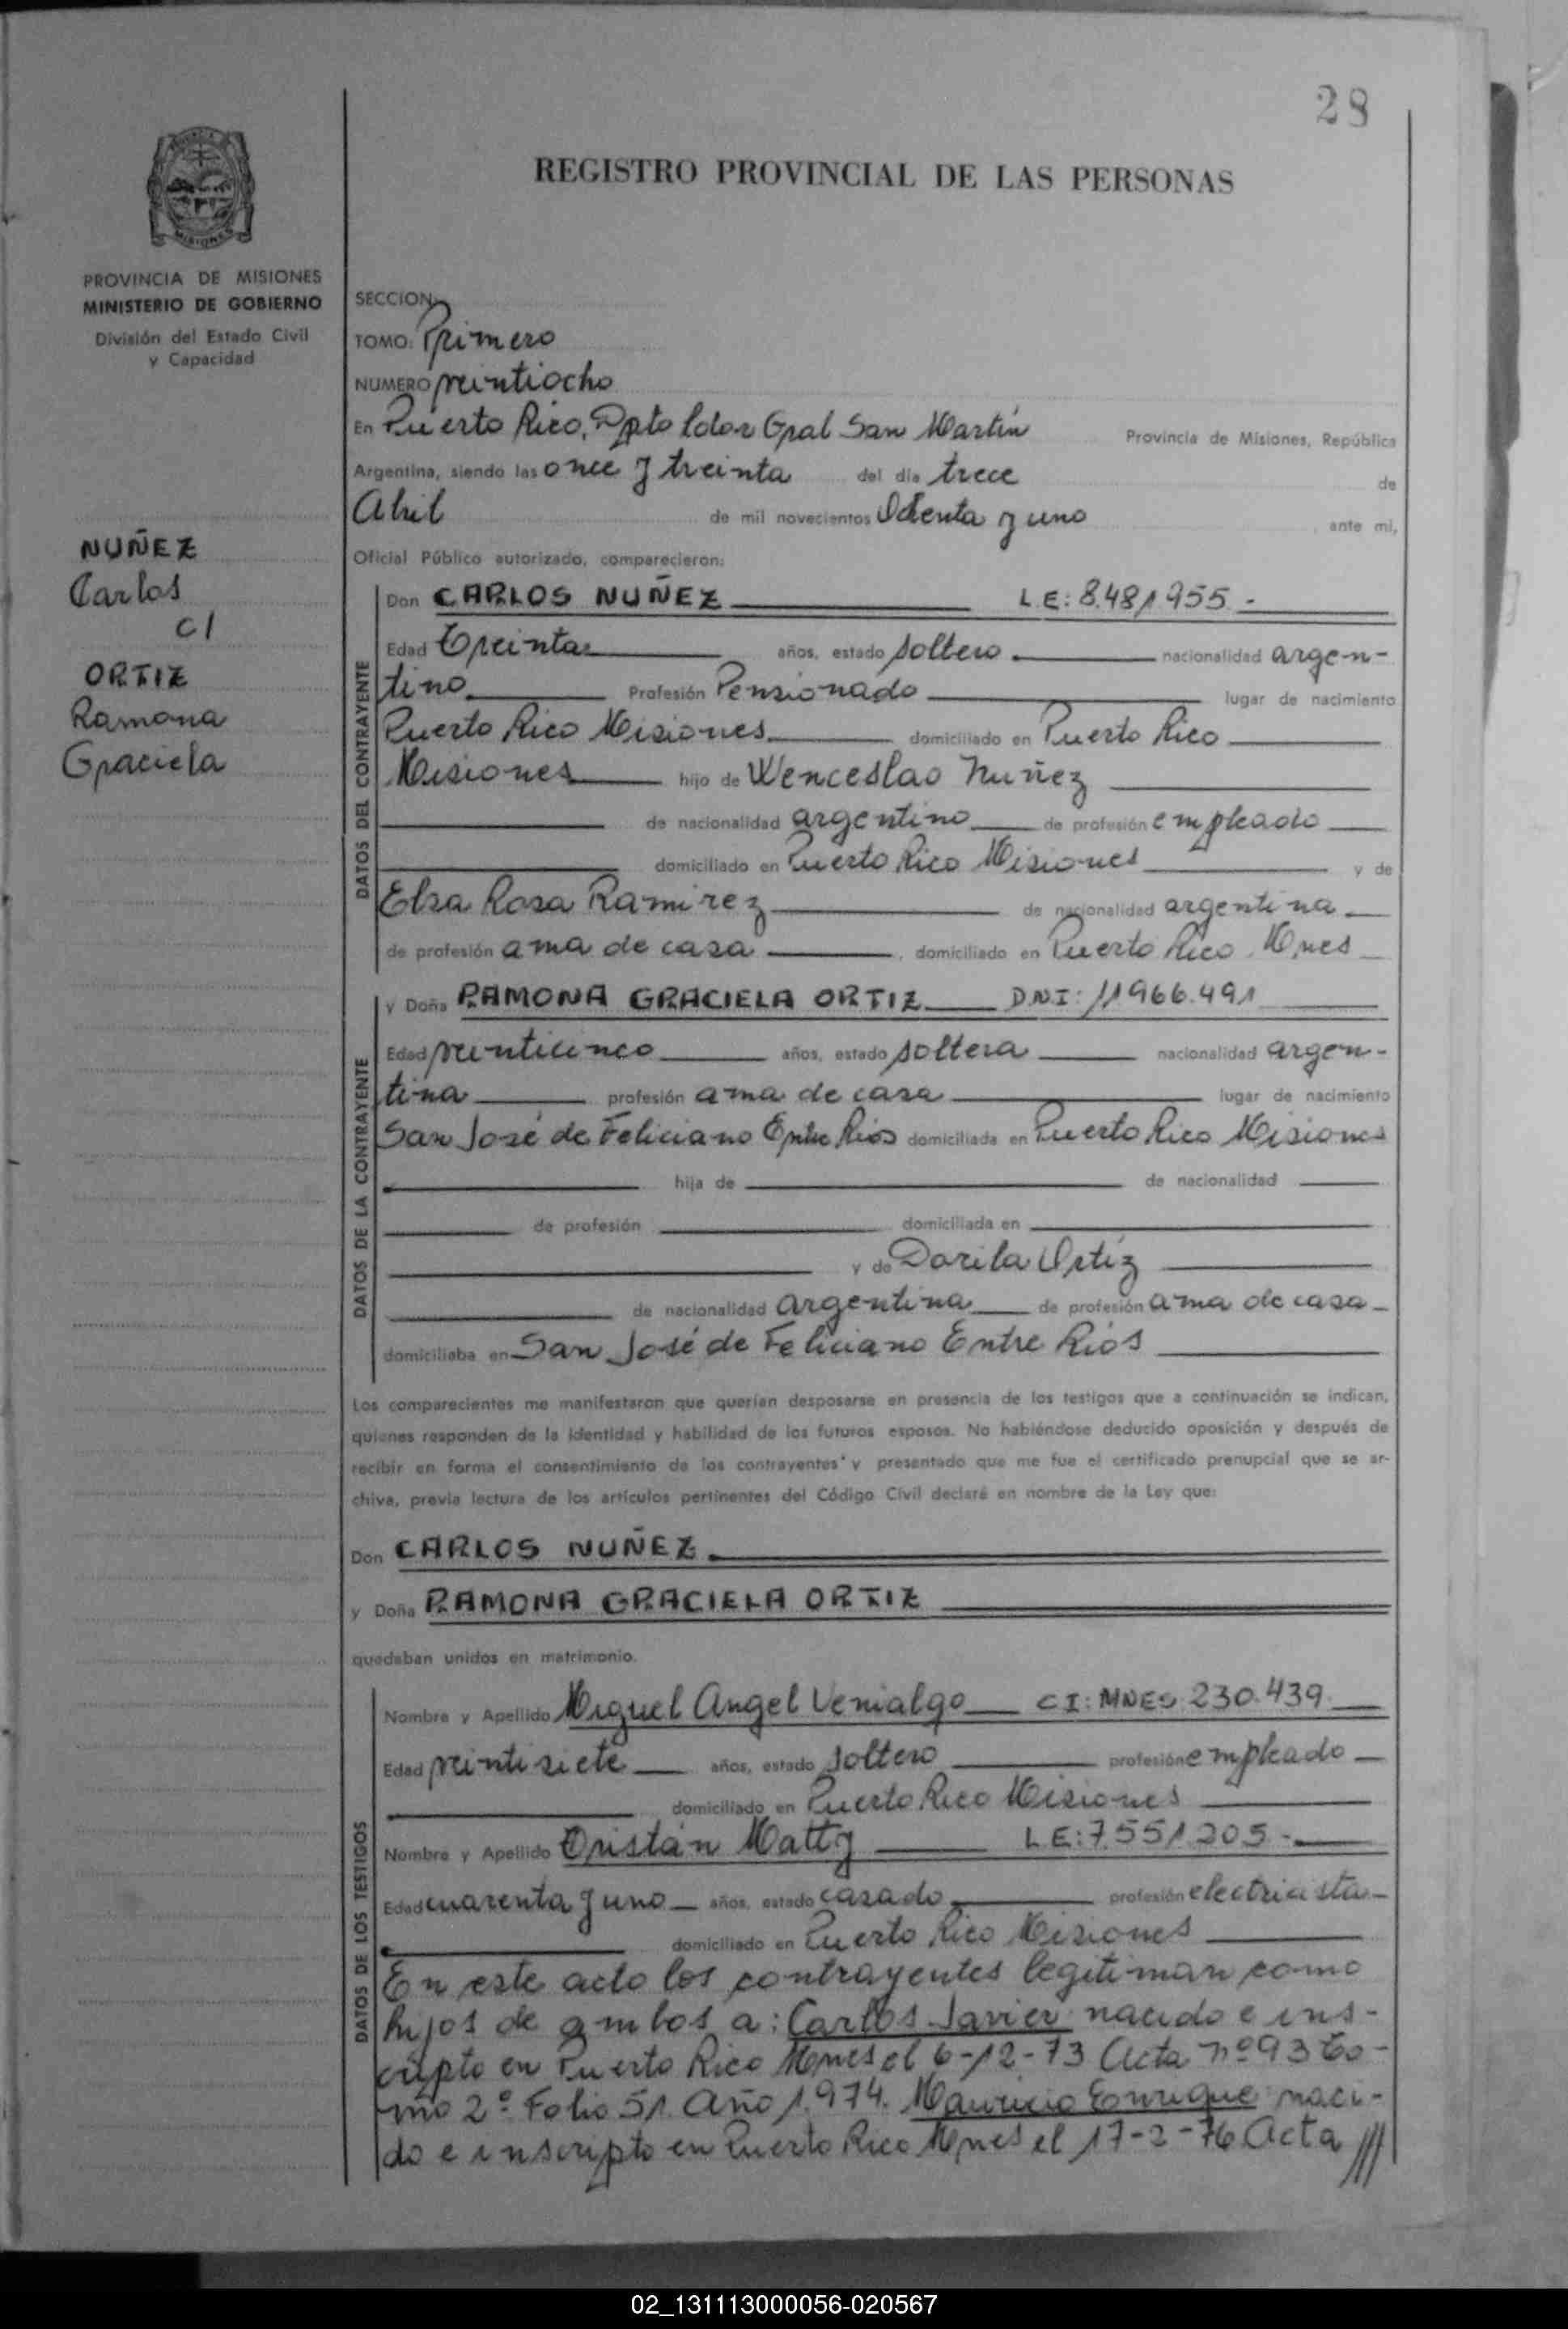 28
REGISTRO PROVINCIAL DE LAS PERSONAS
MISIONES
PROVINCIA DE MISIONES
MINISTERIO DE GOBIERNO
División del Estado Civil
y Capacidad
NUÑEZ
Carlos
c/
ORTIZ
Ramona
Graciela
SECCION:
TOMO: Primero
NUMERO veintiocho
En Puerto Rico, Dpto Ldor Gral San Martín Provincia de Misiones, República
Argentina, siendo las once y treinta del día trece de
Abril de mil novecientos Ochenta y uno ante mí,
Oficial Público autorizado, comparecieron:
DATOS DEL CONTRAYENTE
Don CARLOS NUÑEZ L.E: 8.481.955.-
Edad Treinta años, estado soltero nacionalidad argen-
tino Profesión Pensionado lugar de nacimiento
Puerto Rico Misiones domiciliado en Puerto Rico
Misiones hijo de Wenceslao Nuñez
de nacionalidad argentino de profesión empleado
domiciliado en Puerto Rico Misiones y de
Elsa Rosa Ramirez de nacionalidad argentina
de profesión ama de casa, domiciliado en Puerto Rico Mnes
DATOS DE LA CONTRAYENTE
y Doña RAMONA GRACIELA ORTIZ D.N.I: 11.966.491
Edad veinticinco años, estado soltera nacionalidad argen-
tina profesión ama de casa lugar de nacimiento
San José de Feliciano Entre Ríos domiciliada en Puerto Rico Misiones
hija de de nacionalidad
de profesión domiciliada en
y de Dorila Ortiz
de nacionalidad argentina de profesión ama de casa
domiciliaba en San José de Feliciano Entre Ríos
Los comparecientes me manifestaron que querían desposarse en presencia de los testigos que a continuación se indican,
quienes responden de la identidad y habilidad de los futuros esposos. No habiéndose deducido oposición y después de
recibir en forma el consentimiento de los contrayentes y presentado que me fue el certificado prenupcial que se ar-
chiva, previa lectura de los artículos pertinentes del Código Civil declaré en nombre de la Ley que:
Don CARLOS NUÑEZ
y Doña RAMONA GRACIELA ORTIZ
quedaban unidos en matrimonio.
DATOS DE LOS TESTIGOS
Nombre y Apellido Miguel Angel Venialgo CI: MNES 230.439
Edad veintisiete años, estado soltero profesión empleado
domiciliado en Puerto Rico Misiones
Nombre y Apellido Tristán Matty L.E: 7.551.205.-
Edad cuarenta y uno años, estado casado profesión electricista
domiciliado en Puerto Rico Misiones
En este acto los contrayentes legitiman como
hijos de ambos a: Carlos Javier nacido e ins-
cripto en Puerto Rico Mnes el 6-12-73 Acta nº 93 To-
mo 2º Folio 51 Año 1.974. Mauricio Enrique naci-
do e inscripto en Puerto Rico Mnes el 17-2-76 Acta ///
02_131113000056-020567